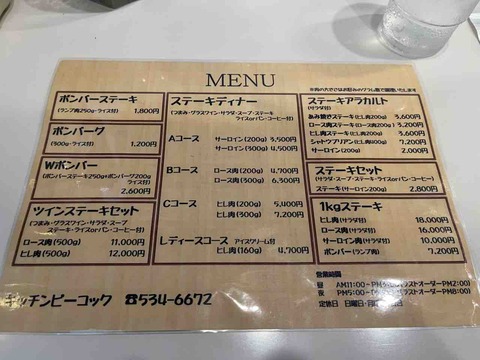 MENU
※肉の大きさはお好みのグラム数で調整いたします
ボンバーステーキ
(ランプ肉250g・ライス付) 1,800円
ボンバーグ
(300g・ライス付) 1,200円
Wボンバー
(ボンバーステーキ250g+ボンバーグ200g
ライス付)
2,600円
ツインステーキセット
(つまみ・グラスワイン・サラダ・スープ
ステーキ・ライスorパン・コーヒー付)
ロース肉(500g) 11,000円
ヒレ肉(500g) 12,000円
ステーキディナー
(つまみ・グラスワイン・サラダ・スープ・ステーキ
ライスorパン・コーヒー付)
Aコース サーロイン(200g) 3,500円
サーロイン(300g) 4,500円
Bコース ロース肉(200g) 4,700円
ロース肉(300g) 6,300円
Cコース ヒレ肉(200g) 5,400円
ヒレ肉(300g) 7,200円
レディースコース アイスクリーム付
ヒレ肉(160g) 4,700円
ステーキアラカルト
(サラダ付)
あみ焼きステーキ(ヒレ肉200g) 3,600円
ロース肉ステーキ(ロース肉200g) 3,200円
ヒレ肉ステーキ(ヒレ肉200g) 3,600円
シャトウブリアン(ヒレ肉200g) 7,700円
サーロイン(200g) 2,000円
ステーキセット
(サラダ・スープ・ステーキ・ライスorパン・コーヒー付)
ステーキ(サーロイン200g) 2,800円
1kgステーキ
ヒレ肉(サラダ付) 18,000円
ロース肉(サラダ付) 16,000円
サーロイン肉(サラダ付) 10,000円
ボンバー(ランプ肉) 7,200円
キッチンピーコック ☎534-6672
営業時間
昼 AM11:00~PM
ラストオーダーPM2:00)
夜 PM5:00~PM
ラストオーダーPM8:00)
定休日 日曜日・